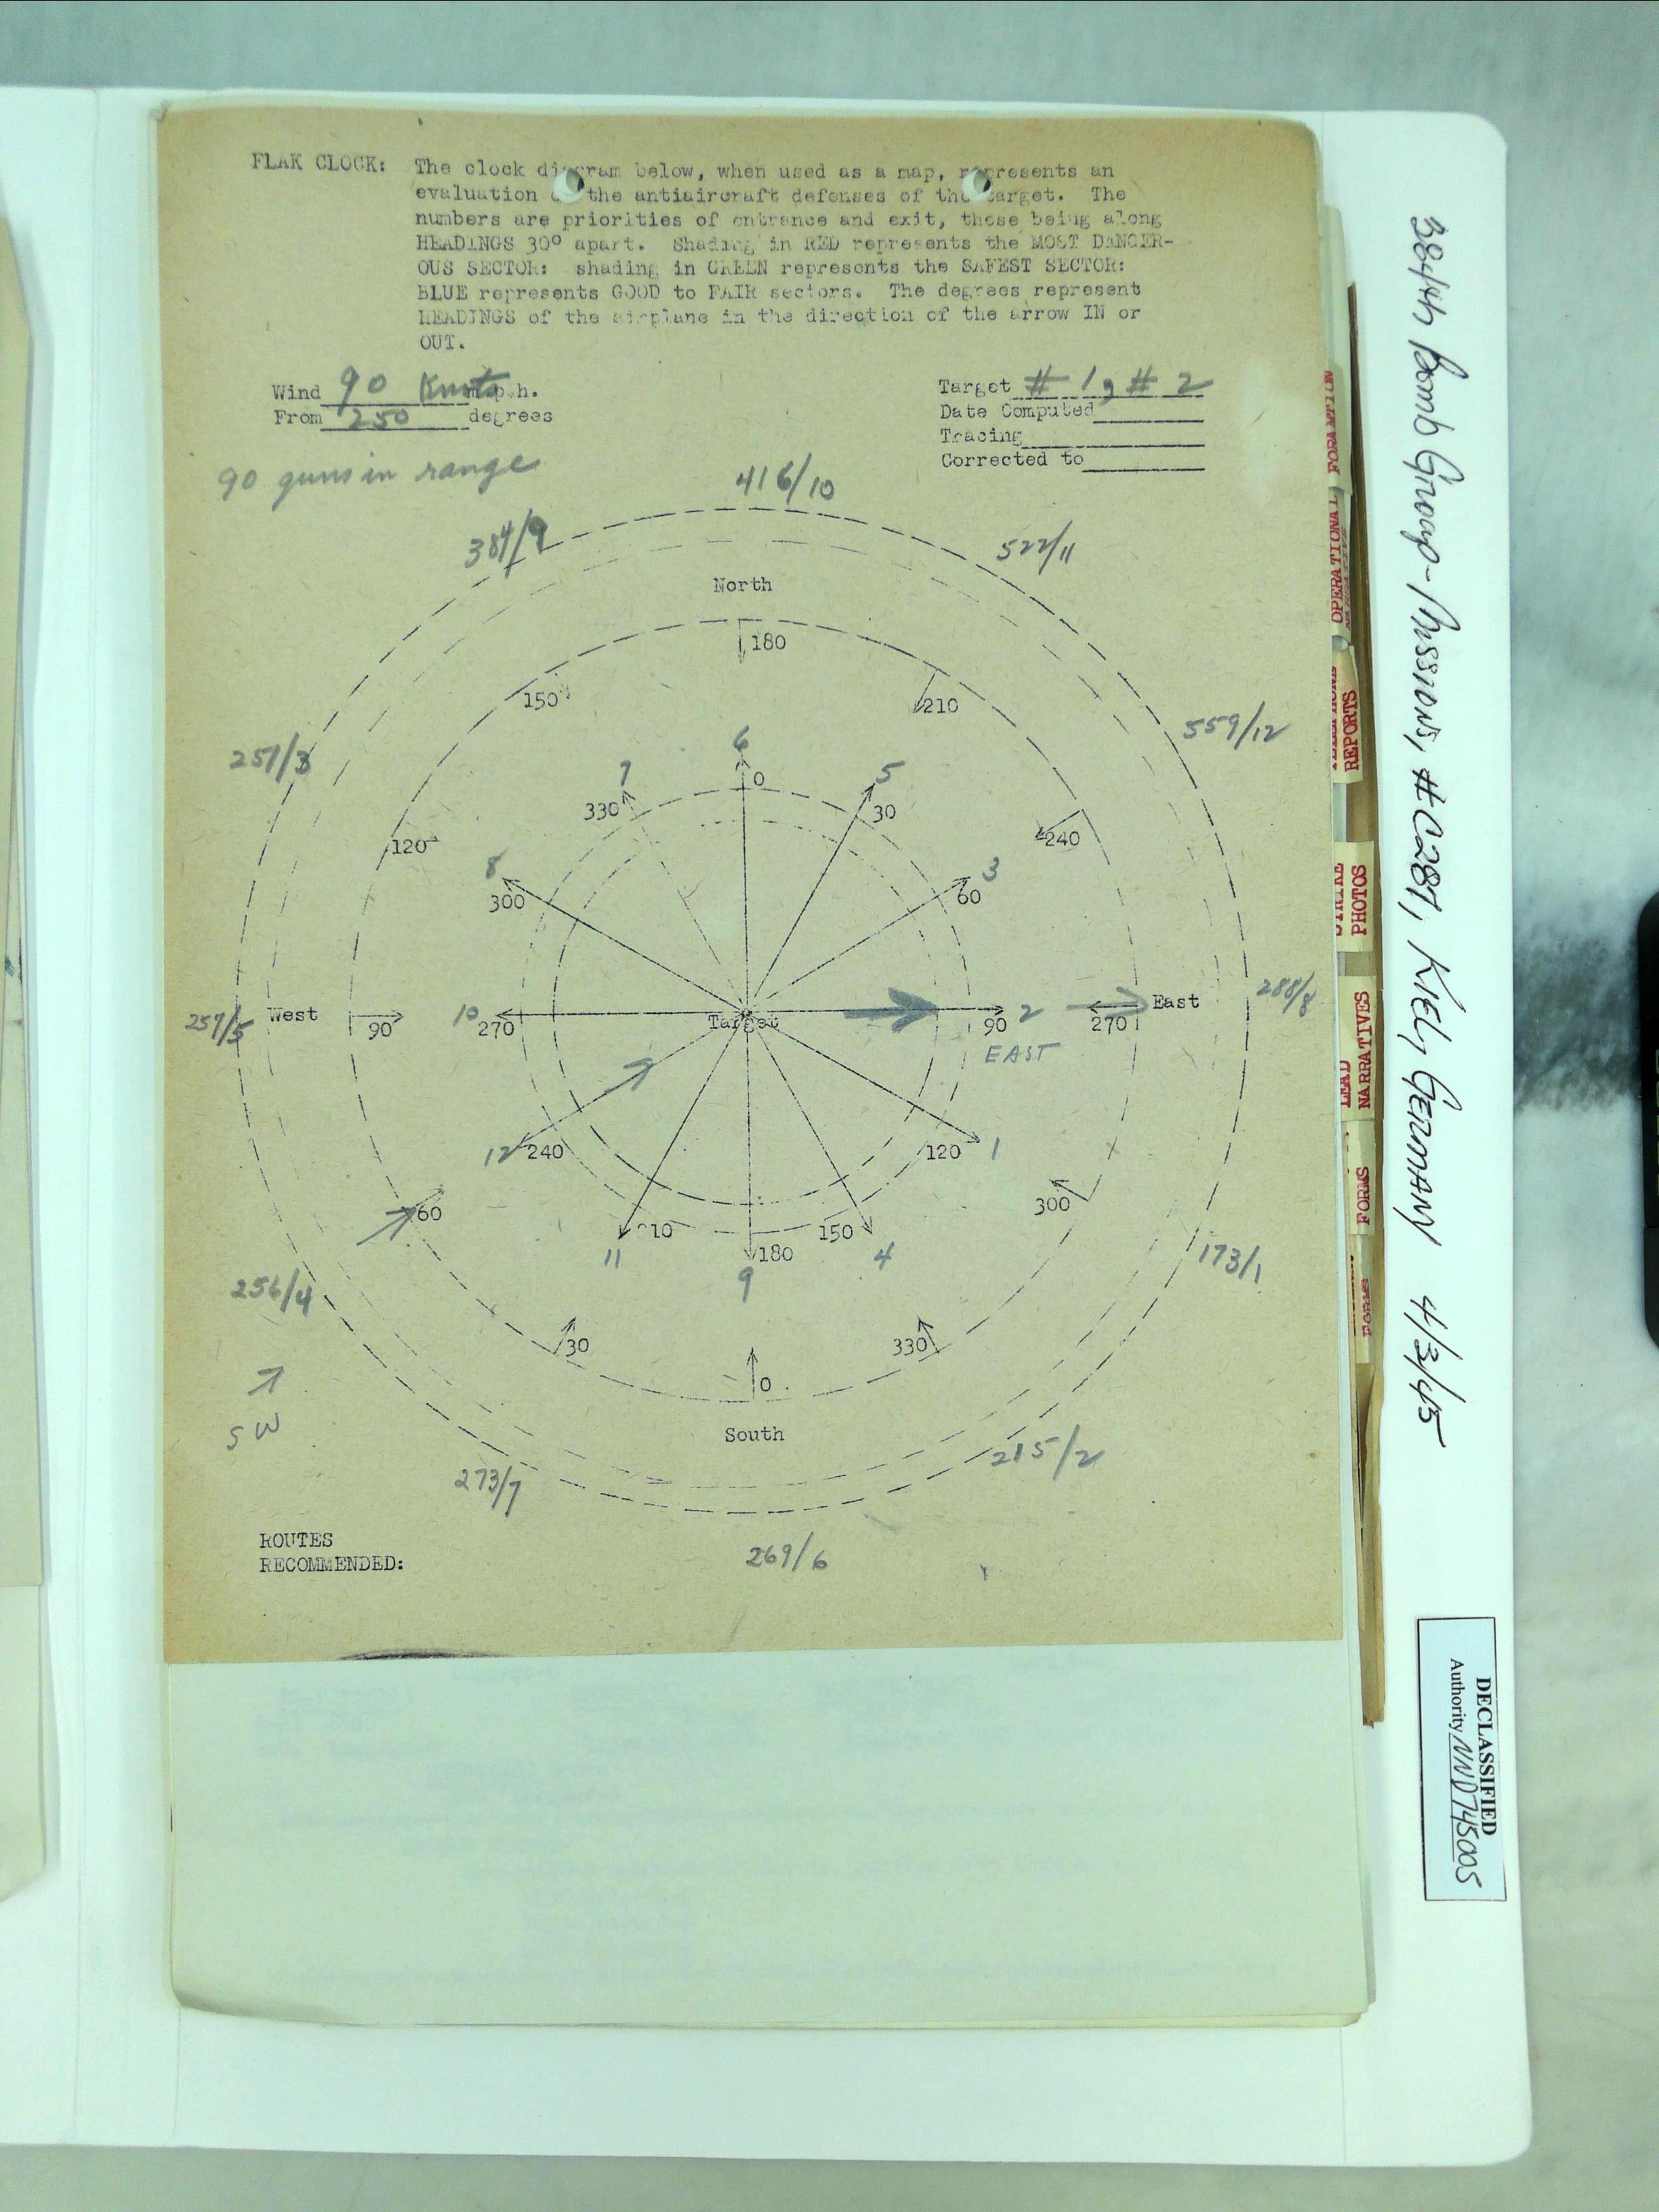 FLAK CLOCK: The clock diagram below, when used as a map, represents an
evaluation the antiaircraft defenses of the target. The
numbers are priorities of entrance and exit, these being along
HEADINGS 30° apart. Shading in RED represents the MOST DANGER-
OUS SECTOR: shading in GREEN represents the SAFEST SECTOR:
BLUE represents GOOD to FAIR sectors. The degrees represent
HEADINGS of the airplane in the direction of the arrow IN or
OUT.
Wind 90 Knots m.p.h.
From 250 degrees
Target # 1, # 2
Date Computed
Tracing
Corrected to
90 guns in range
416/10
384/9
522/11
North
180
150
210
251/3
559/12
6
7
5
0
330
30
120
240
8
3
300
60
257/5
West
90
10
270
Target
90
2
EAST
270
East
288/8
12
240
120
1
60
300
11
10
180
150
9
4
173/1
256/4
30
330
0
SW
South
273/7
215/2
269/6
ROUTES
RECOMMENDED:
FORMATION
OPERATIONAL
REPORTS
STRIKE
PHOTOS
LEAD
NARRATIVES
FORMS
FORMS
384th Bomb Group - Missions, #C281, KIEL, GERMANY 4/3/45
DECLASSIFIED
Authority NND745005